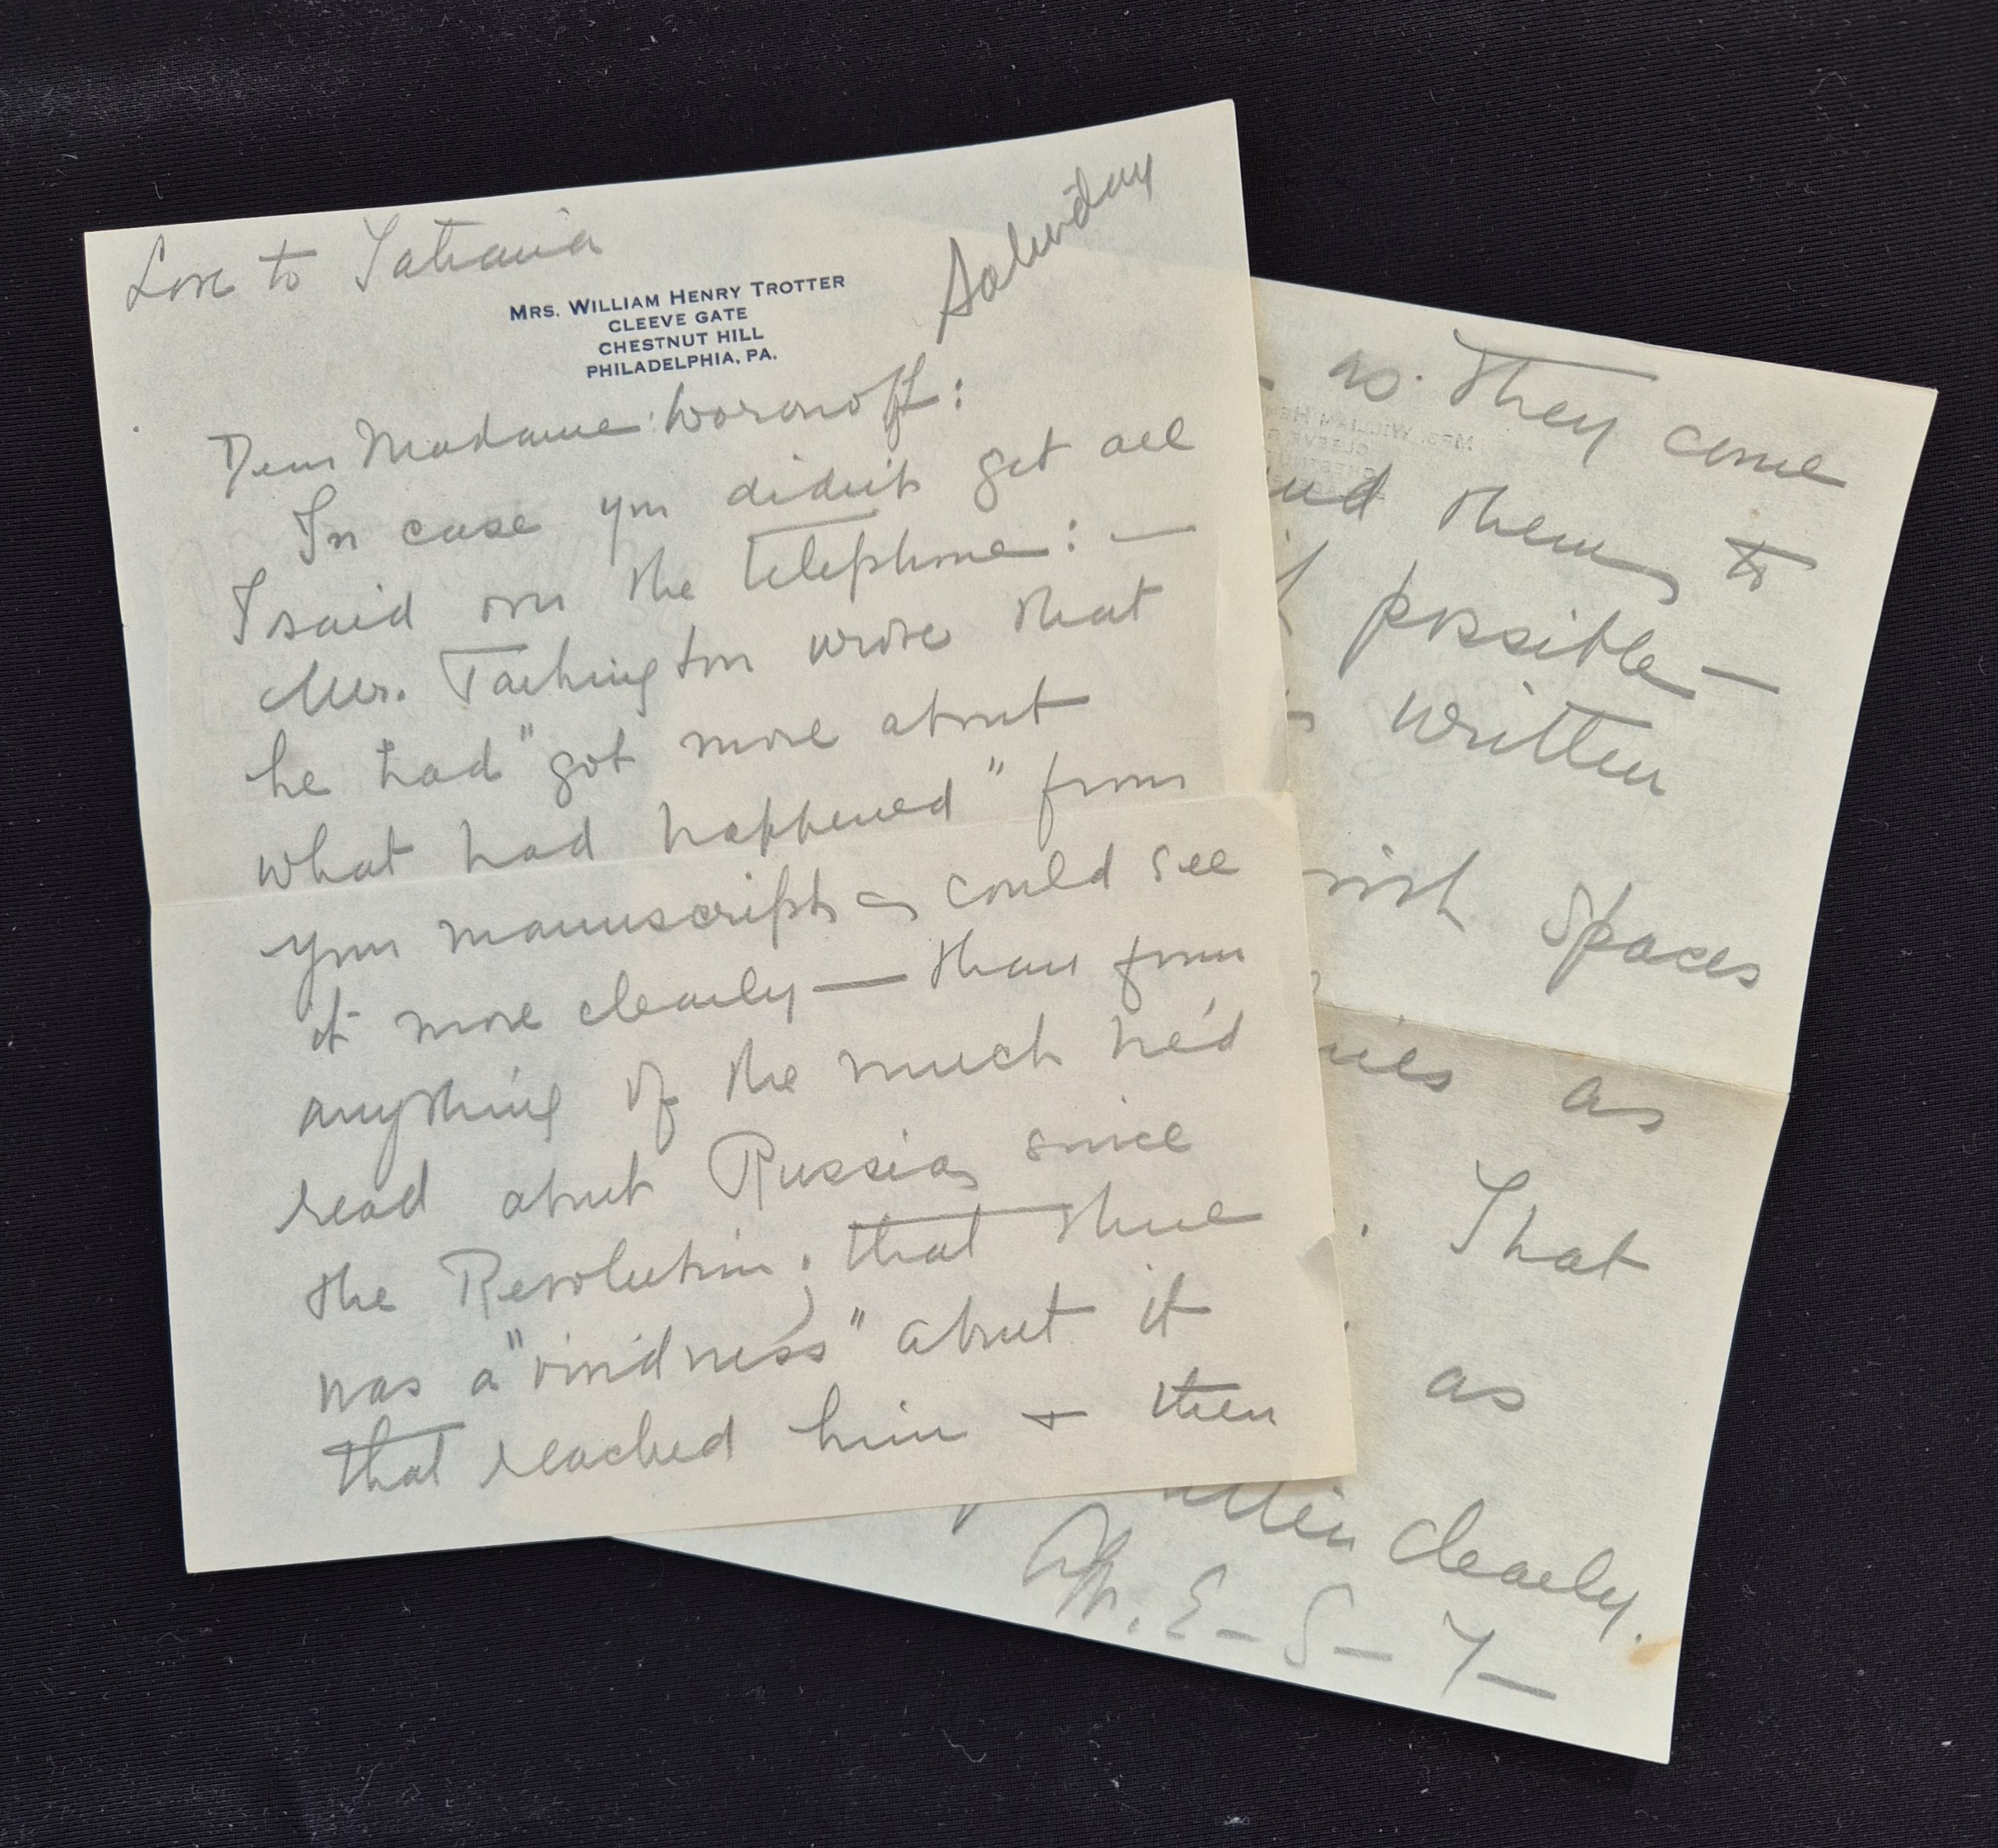 Love to Tatiana
Saturday
MRS. WILLIAM HENRY TROTTER
CLEEVE GATE
CHESTNUT HILL
PHILADELPHIA, PA.
Dear Madame Woronoff:
In case you didn't get all
I said over the telephone: —
Mr. Tarkington wrote that
he had "got more about
what had happened" from
your manuscript & could see
it more clearly — than from
anything of the much he'd
read about Russia, since
the Revolution; that there
was a "vividness" about it
that reached him & then
as they come
them, to
possible —
written
spaces
as
That
as
clearly.
E — S — T —